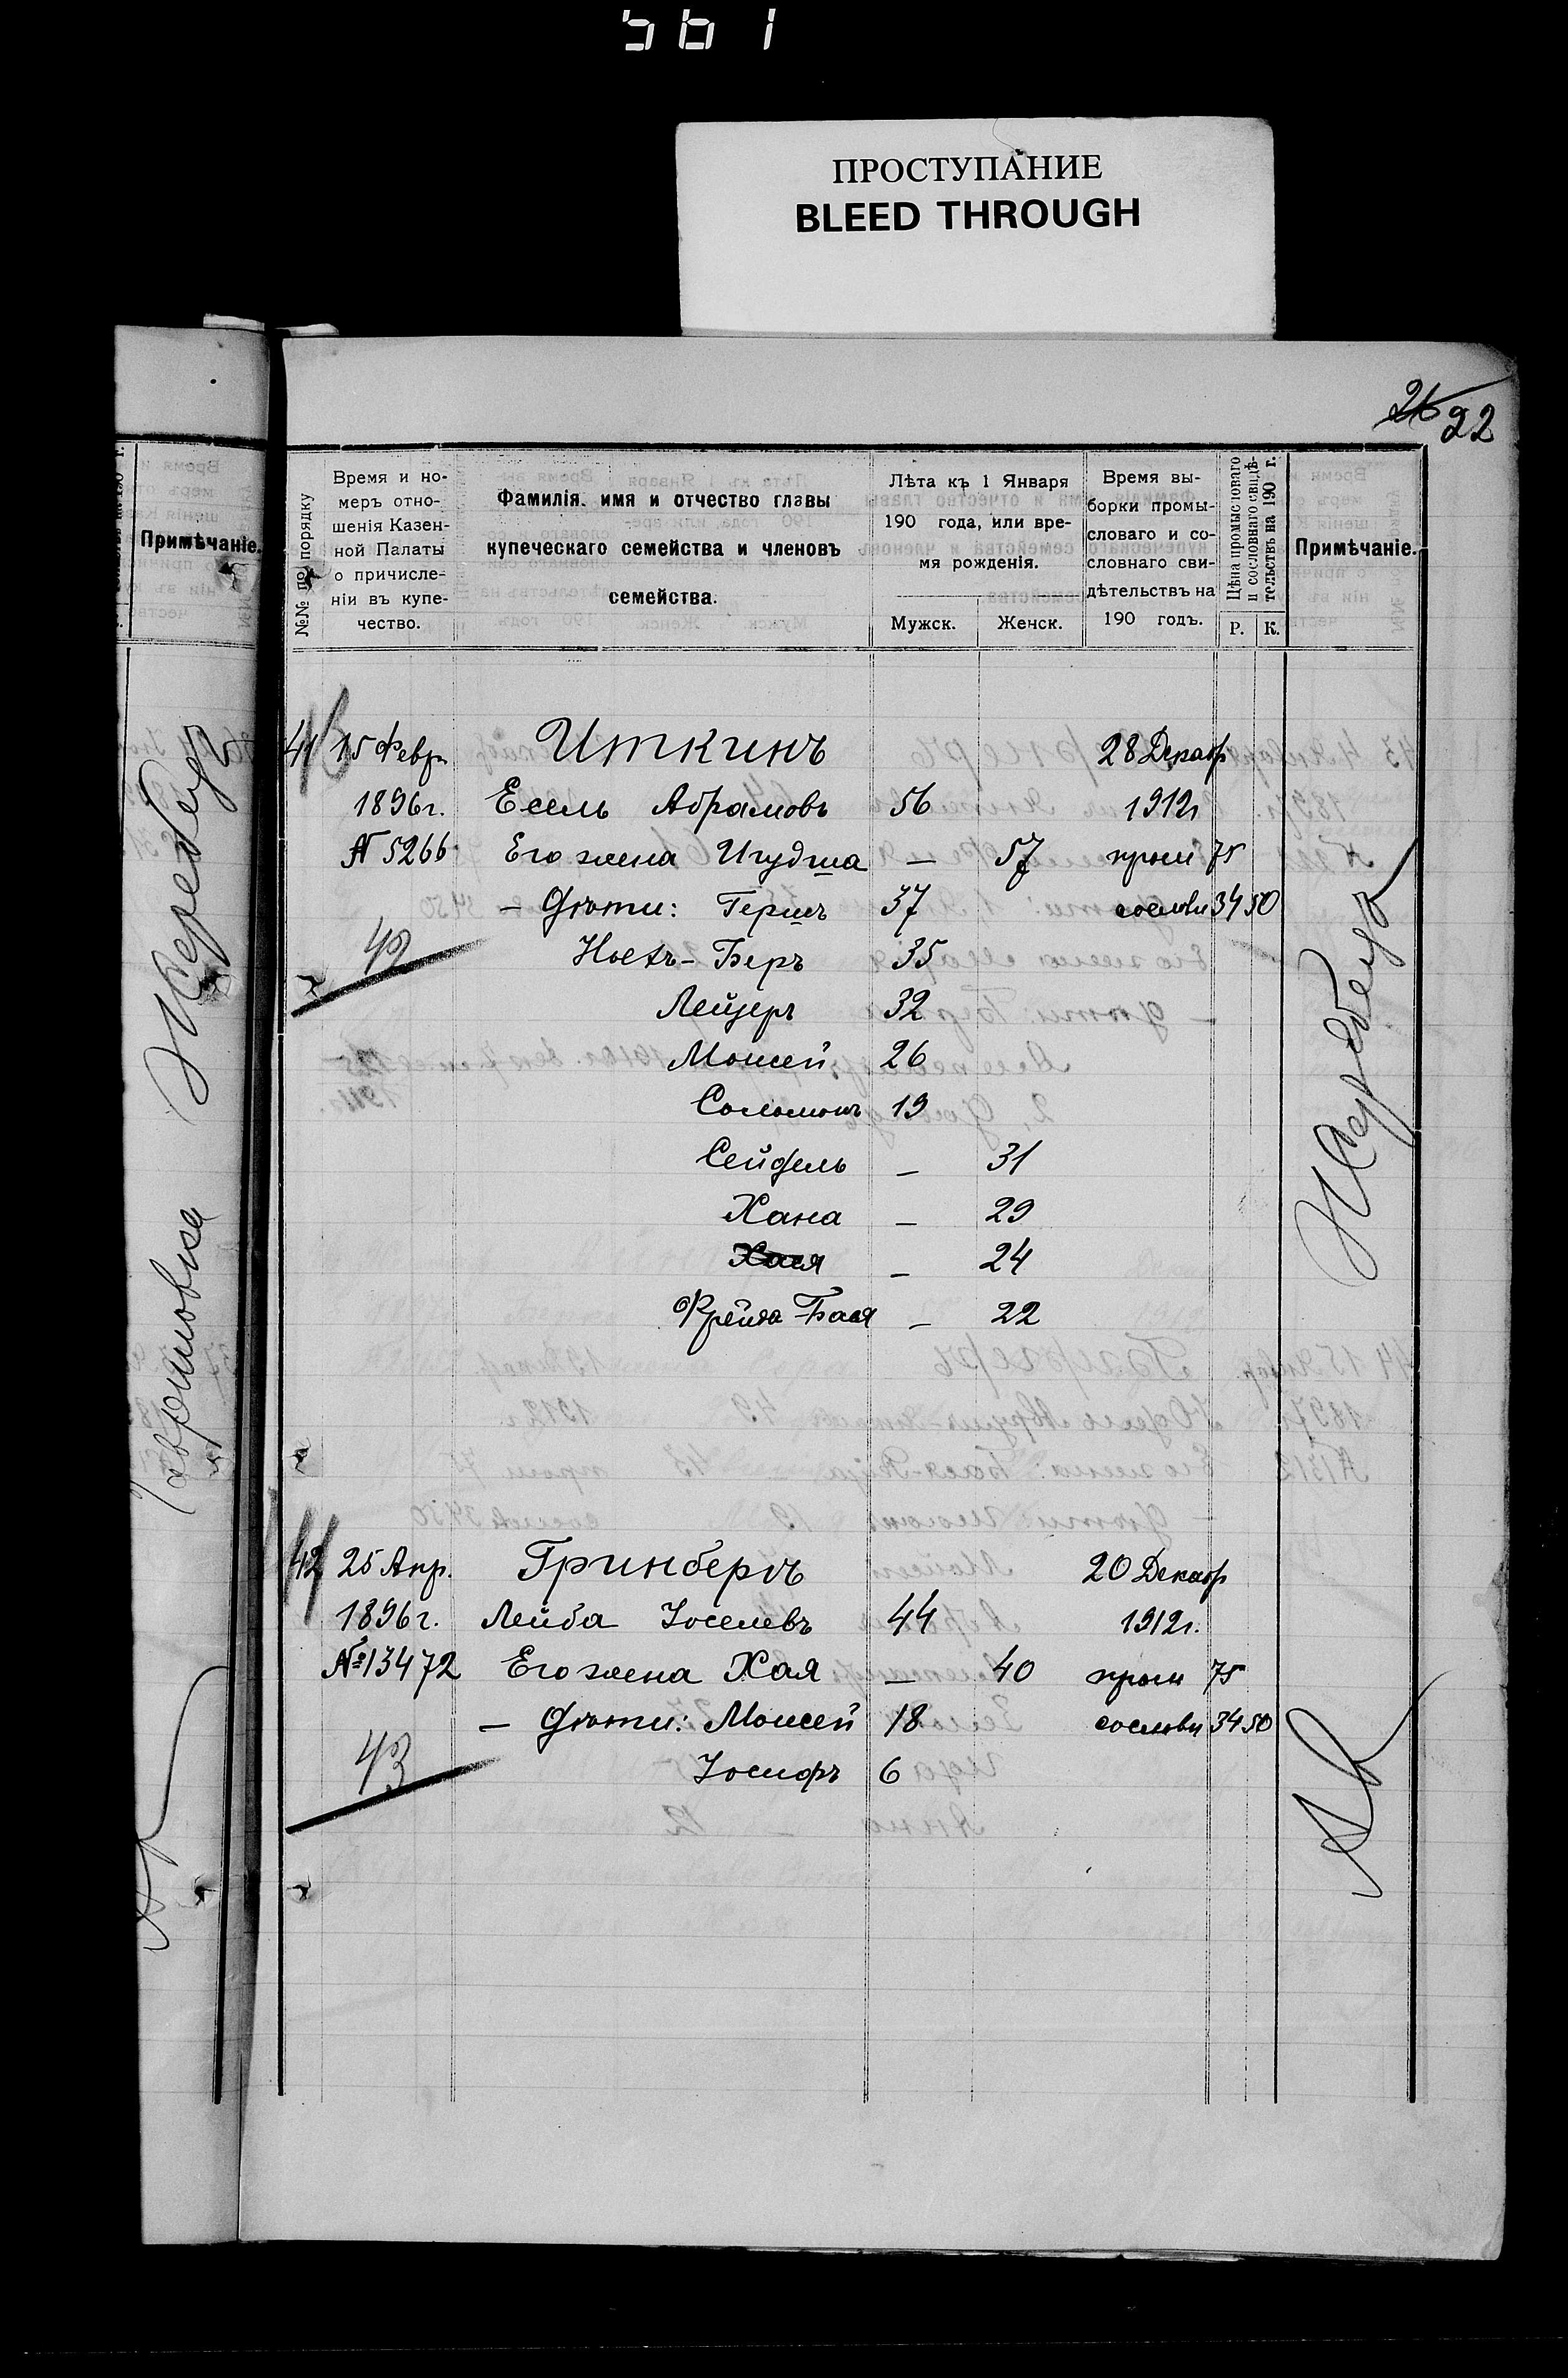 561
ПРОСТУПАНИЕ
BLEED THROUGH
26 22
Примѣчаніе.
№№ по порядку
Время и но-
меръ отно-
шенія Казен-
ной Палаты
о причисле-
ніи въ купе-
чество.
Фамилія, имя и отчество главы
купеческаго семейства и членовъ
семейства.
Лѣта къ 1 Января
190 года, или вре-
мя рожденія.
Мужск. Женск.
Время вы-
борки промы-
словаго и со-
словнаго сви-
дѣтельствъ на
190 годъ.
Цѣна промысловаго
и сословнаго свидѣ-
тельствъ на 190 г.
Р. К.
Примѣчаніе.
41 15 Февр. Иткинъ 28 Декабр
1896г. Есель Абрамовъ 56 1912г
№ 5266 Его жена Игудша — 57 пром 75
— Дѣти: Гершъ 37 сословн 34 50
42 Носъ-Беръ 35
Лейзеръ 32
Моисей 26
Соломонъ 19
Сейдель — 31
Хана — 29
Хася — 24
Фрейда-Бася — 22
42 25 Апр. Гринбергъ 20 Декабр
1896г. Лейба Іоселевъ 44 1912г.
№ 13472 Его жена Хая — 40 пром 75
— Дѣти: Моисей 18 сословн 34 50
43 Іосифъ 6